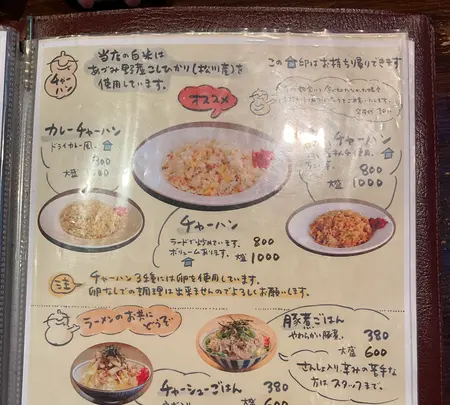 チャーハン
当店の白米は
あづみ野産こしひかり(松川産)を
使用しています。
この 印はお持ち帰りできます
オススメ
カレーチャーハン
ドライカレー風。
800
大盛 1000
チャーハン
800
大盛 1000
チャーハン
ラードで炒めています。 800
ボリュームあります。 大盛 1000
注
チャーハン3種には卵を使用しています。
卵なしでの調理は出来ませんのでよろしくお願いします。
ラーメンのお共に
どうぞ
豚煮ごはん
やわらかい豚煮。 380
大盛 600
さんしょ入り。辛みの苦手な
方はスタッフまで。
チャーシューごはん 380
大盛 600